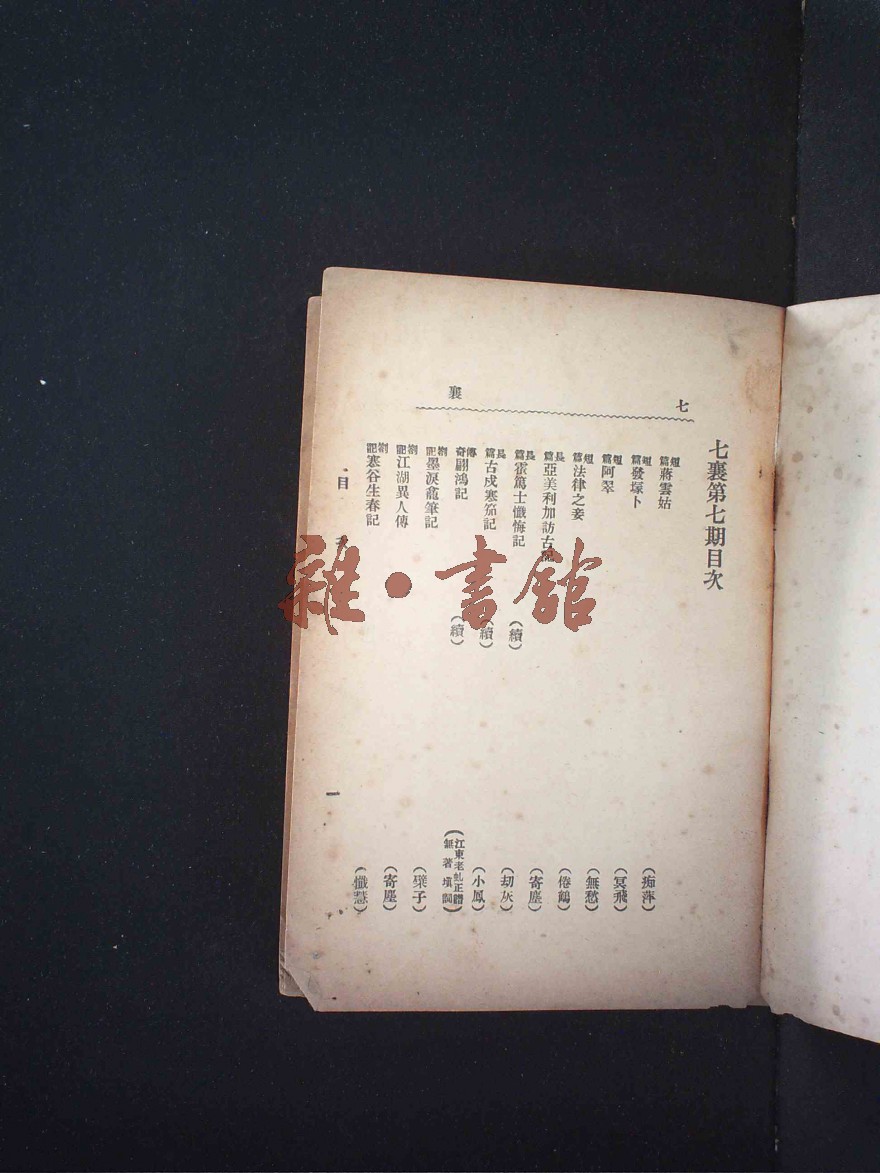 七襄
七襄第七期目次
短篇 蔣雲姑 (痴萍)
短篇 發塚卜 (冥飛)
短篇 阿翠 (無愁)
短篇 法律之妾 (倦鶴)
長篇 亞美利加訪古記 (寄塵)
長篇 霍篤士懺悔記 (續) (劫灰)
長篇 古戍寒笳記 (續) (小鳳)
傳奇 翩鴻記 (續) (江東老虬正譜 無著填詞)
劄記 墨淚龕筆記 (檗子)
劄記 江湖異人傳 (寄塵)
劄記 寒谷生春記 (懺慧)
目次
一
雜·書館